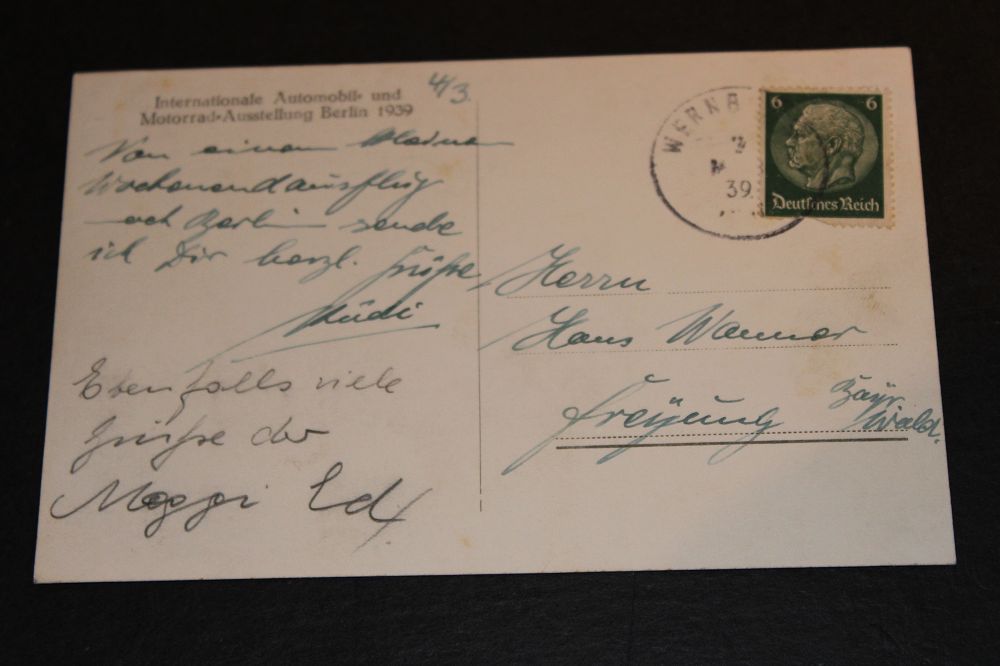 Internationale Automobil- und
Motorrad-Ausstellung Berlin 1939
4/3.
Von einem kleinen
Wochenendausflug
nach Berlin sende
ich Dir herzl. Grüße
Rudi
Ebenfalls viele
Grüße der
WERNB
39.
6 6
Deutsches Reich
Herrn
Hans Wanner
Freyung Bayr.
Wald.